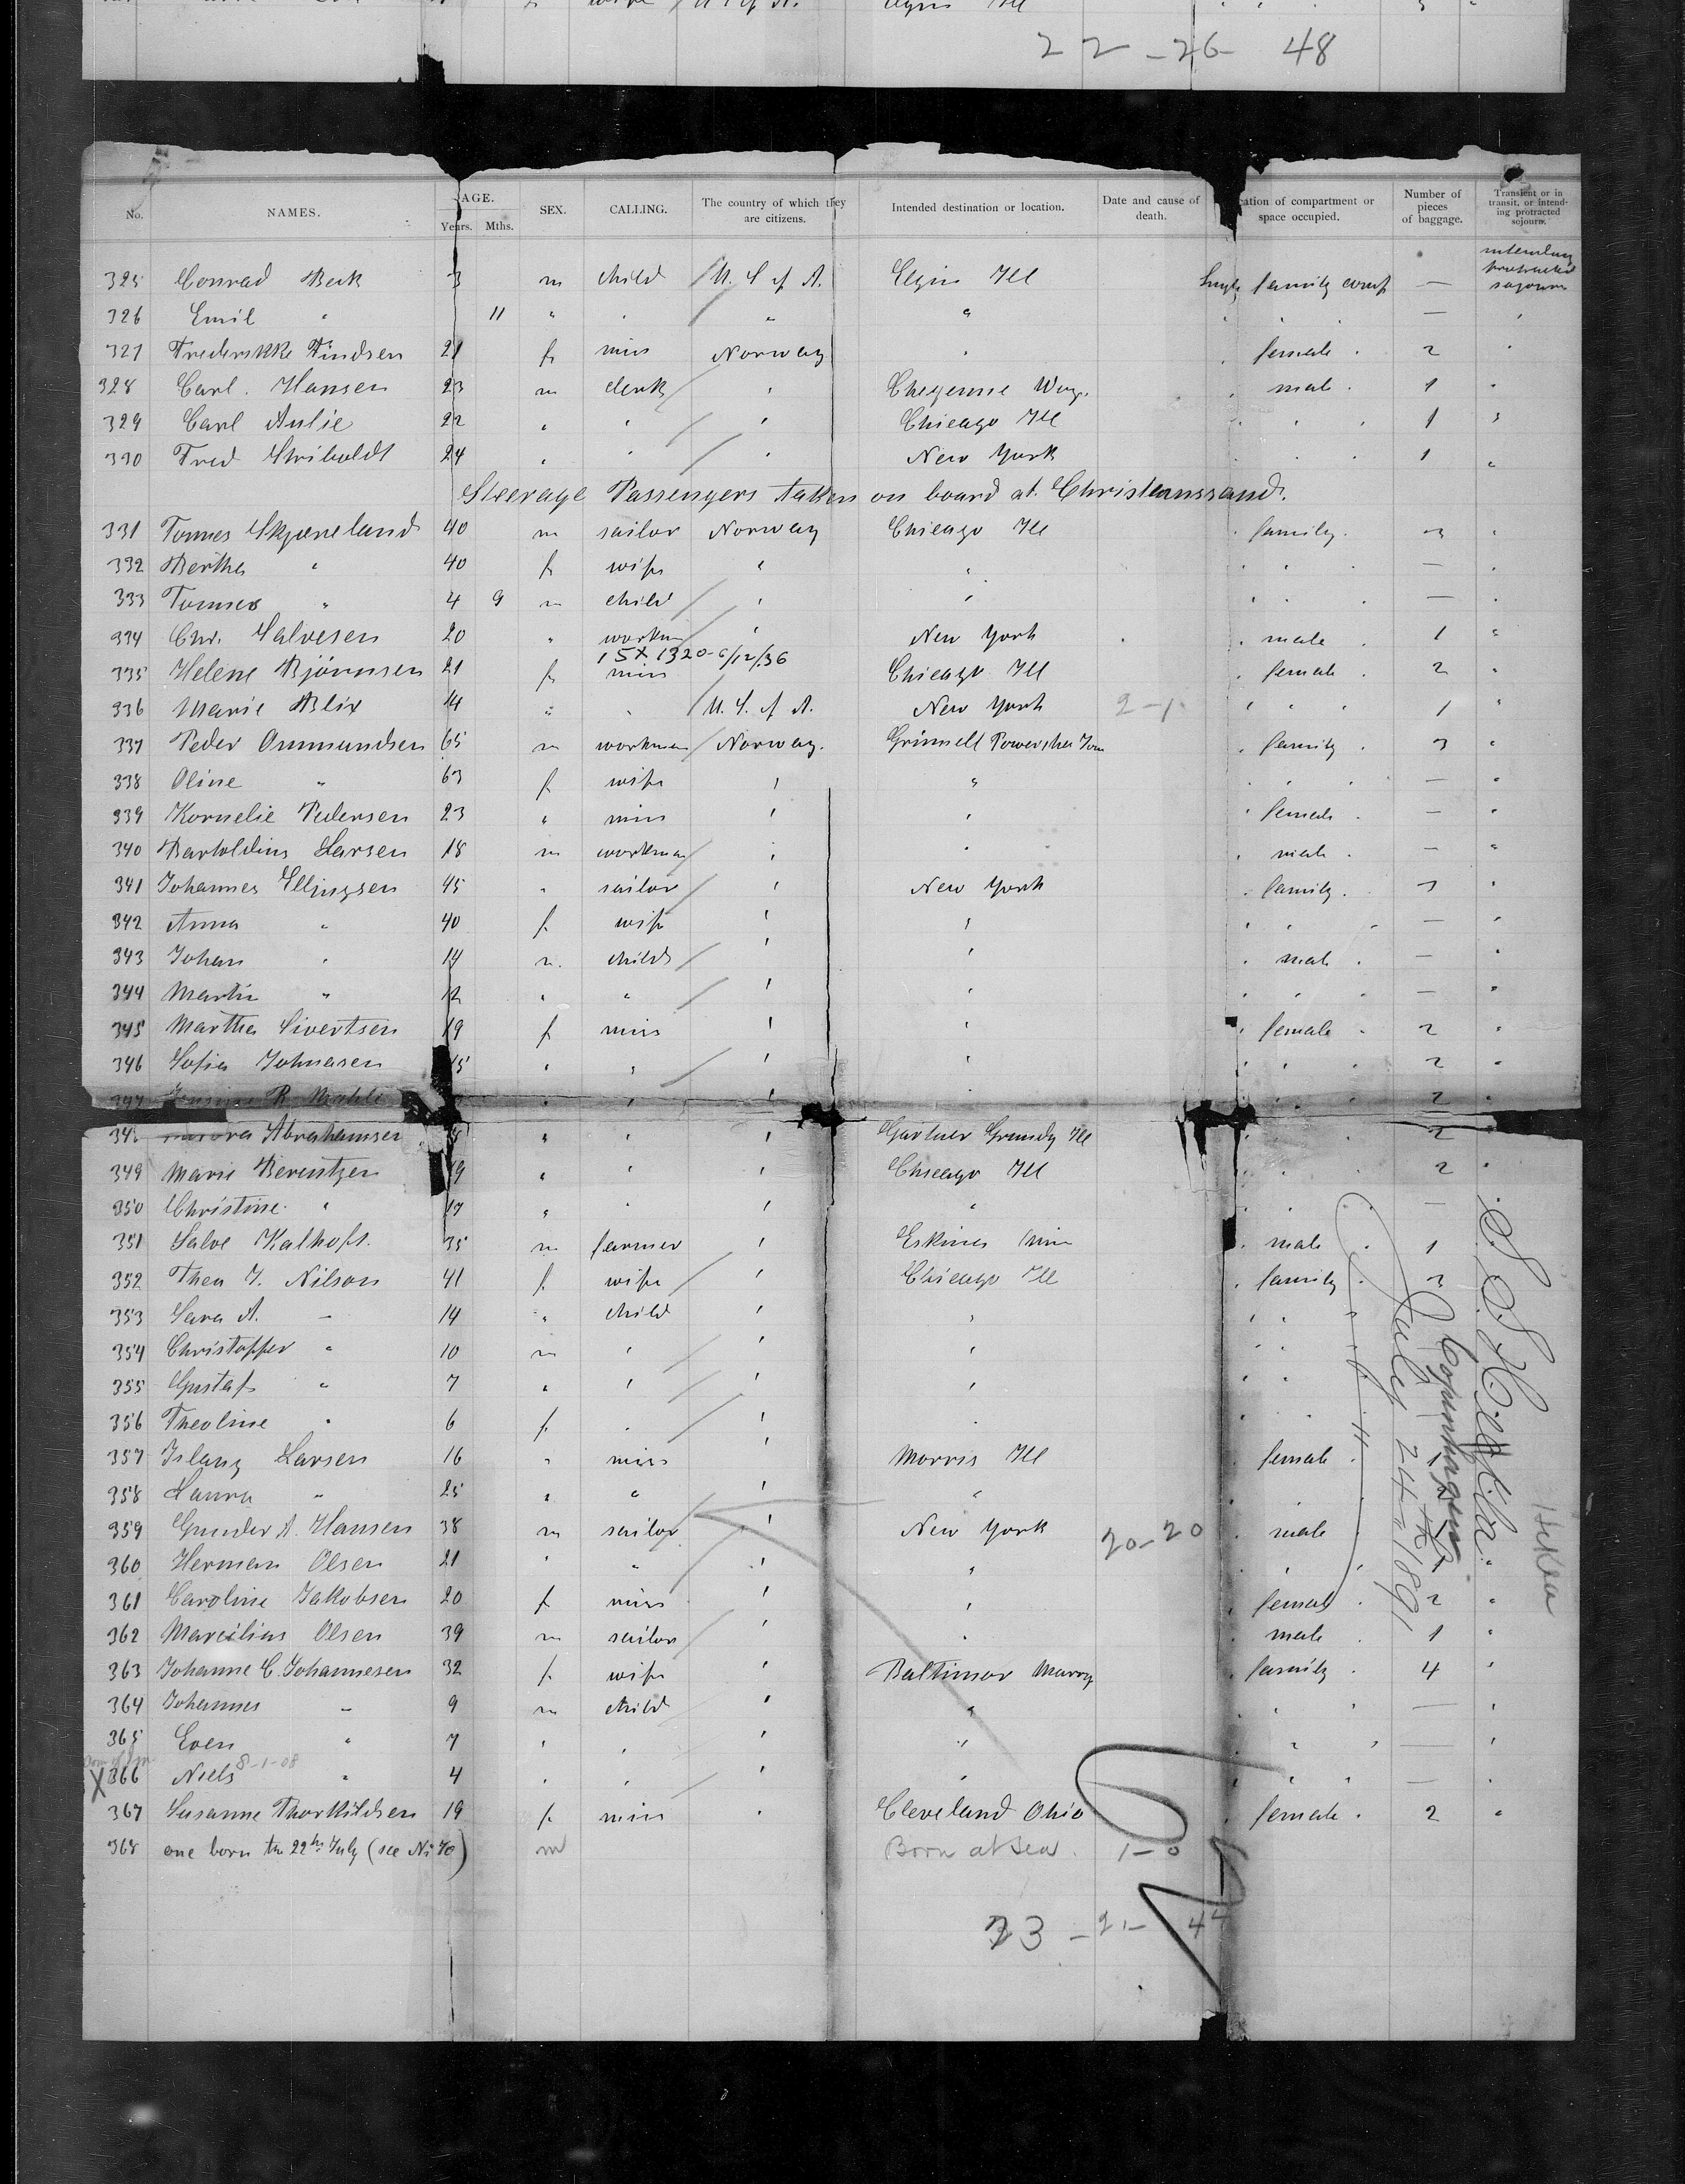 22-26- 48
No. NAMES. AGE. Years. Mths. SEX. CALLING. The country of which they are citizens. Intended destination or location. Date and cause of death. cation of compartment or space occupied. Number of pieces of baggage. Transient or in transit, or intending protracted sojourn.
intending protracted sojourn
325 Conrad Beck 3 m child U. S. of A. Elgin Ill family comp —
326 Emil " 11 " " " " " —
327 Frederikke 21 f miss Norway " female " 2 "
328 Carl Hansen 23 m clerk " Cheyenne Wyo. male " 1 "
329 Carl Aulie 22 " " " Chicago Ill " " " 1 "
330 Fred Striboldt 24 " " " New York " " 1 "
Steerage Passengers taken on board at Christianssand.
331 Tonnes Skjæveland 40 m sailor Norway Chicago Ill " family " 3 "
332 Berthe " 40 f wife " " " " —
333 Tonnes " 4 9 m child " " " " —
334 Chr. Salvesen 20 " workm " New York " male " 1 "
15X1320-6/12/36
335 Helene Bjørnsen 21 f miss Chicago Ill " female " 2 "
336 Marie Blix 14 " " U. S. of A. New York 2-1 " " " 1 "
337 Peder Ommundsen 65 m workman Norway. Grinnell Poweshiek Iowa " family " 3 "
338 Oline " 63 f wife " " " " —
339 Kornelie Pedersen 23 " miss " " " female " —
340 Bartoldius Larsen 18 m workman " " " male " —
341 Johannes Ellingsen 45 " sailor " New York " family " 3 "
342 Anna " 40 f wife " " " " " —
343 Johan " 14 m child " " " male " —
344 Martin " 12 " " " " " " " —
345 Marthe Sivertsen 19 f miss " " " female " 2 "
346 Sofie Johnasen 15 " " " " " " " 2 "
347 R. " " " " " " " 2 "
34 Abrahamsen 18 " " " Gardner Grundy Ill " " 2
349 Marie Berentzen 19 " " " Chicago Ill " " 2 "
350 Christine " 17 " " " " " " " —
351 Salve Kalhoft. 35 m farmer " Minn " male " 1 "
352 Thea J. Nilson 41 f wife " Chicago Ill " family " 3
353 Sara A. — 14 " child " " " "
354 Christopher " 10 m " " " " "
355 Gustaf " 7 " " " " " "
356 Theoline " 6 f " " " " "
357 Larsen 16 " miss " Morris Ill female " 1
358 Laura " 25 " " " " " "
359 Gunder A. Hansen 38 m sailor " New York 20-20 " male "
360 Herman Olsen 21 " " " " " " 1 "
361 Caroline Jakobsen 20 f miss " " " female " 2 "
362 Marcilius Olsen 39 m sailor " " " male " 1 "
363 Johanne C. Johannesen 32 f wife " Baltimor Mary " family " 4 "
364 Johannes — 9 m child " " " " " — "
365 Even " 7 " " " " " " — "
8-1-08
X 366 Niels " 4 " " " " " " " — "
367 Susanne Thorkildsen 19 f miss " Cleveland Ohio " female " 2 "
368 one born the 22th July (see No 70) m Born at Sea. 1-0
23 - 21- 44
S. S. Hekla
Copenhagen
July 24th 1891
Hekla